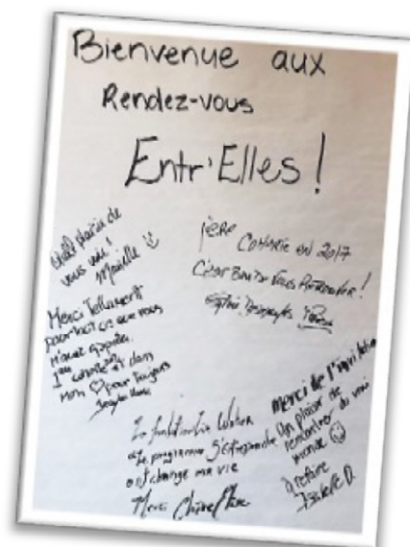 Bienvenue aux
Rendez-vous
Entr'Elles!
plaisir de
vous voir!
Marielle
Merci Tellement
pour tout ce que vous
m'avez apporté.
1ère cohorte et dans
mon ♡ pour Toujours
1ère Cohorte en 2017
C'est Bon de Vous Retrouver!
La fondation
Le programme S'Entreprendre
ont changé ma vie
Merci
Merci de l'invitation
Un plaisir de
rencontrer du vrai
monde ☺
à refaire
Isabelle D.